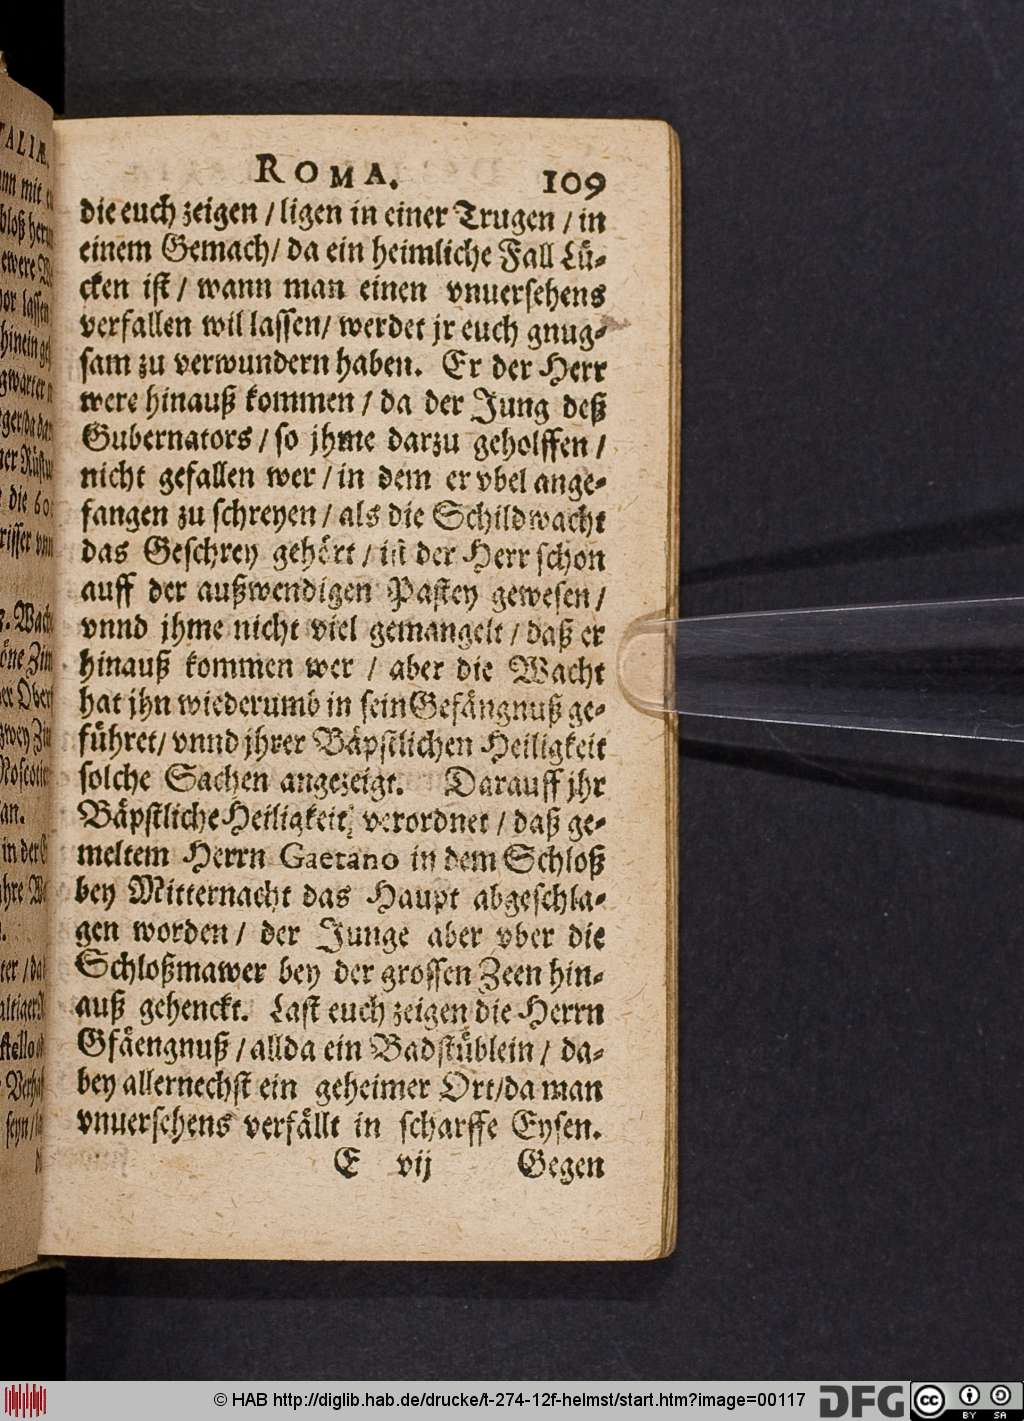 ROMA. 109
die euch zeigen / ligen in einer Trugen / in
einem Gemach / da ein heimliche Fall Lü-
cken ist / wann man einen vnuersehens
verfallen wil lassen / werdet jr euch gnug-
sam zu verwundern haben. Er der Herr
were hinauß kommen / da der Jung deß
Gubernators / so jhme darzu geholffen /
nicht gefallen wer / in dem er vbel ange-
fangen zu schreyen / als die Schildwacht
das Geschrey gehört / ist der Herr schon
auff der außwendigen Pastey gewesen /
vnnd jhme nicht viel gemangelt / daß er
hinauß kommen wer / aber die Wacht
hat jhn wiederumb in sein Gefängnuß ge-
führet / vnnd jhrer Bäpstlichen Heiligkeit
solche Sachen angezeigt. Darauff jhr
Bäpstliche Heiligkeit verordnet / daß ge-
meltem Herrn Gaetano in dem Schloß
bey Mitternacht das Haupt abgeschla-
gen worden / der Junge aber vber die
Schloßmawer bey der grossen Zeen hin-
auß gehenckt. Last euch zeigen die Herrn
Gfäengnuß / allda ein Badstüblein / da-
bey allernechst ein geheimer Ort / da man
vnuersehens verfällt in scharffe Eysen.
E vij Gegen
© HAB http://diglib.hab.de/drucke/t-274-12f-helmst/start.htm?image=00117
DFG
cc BY SA